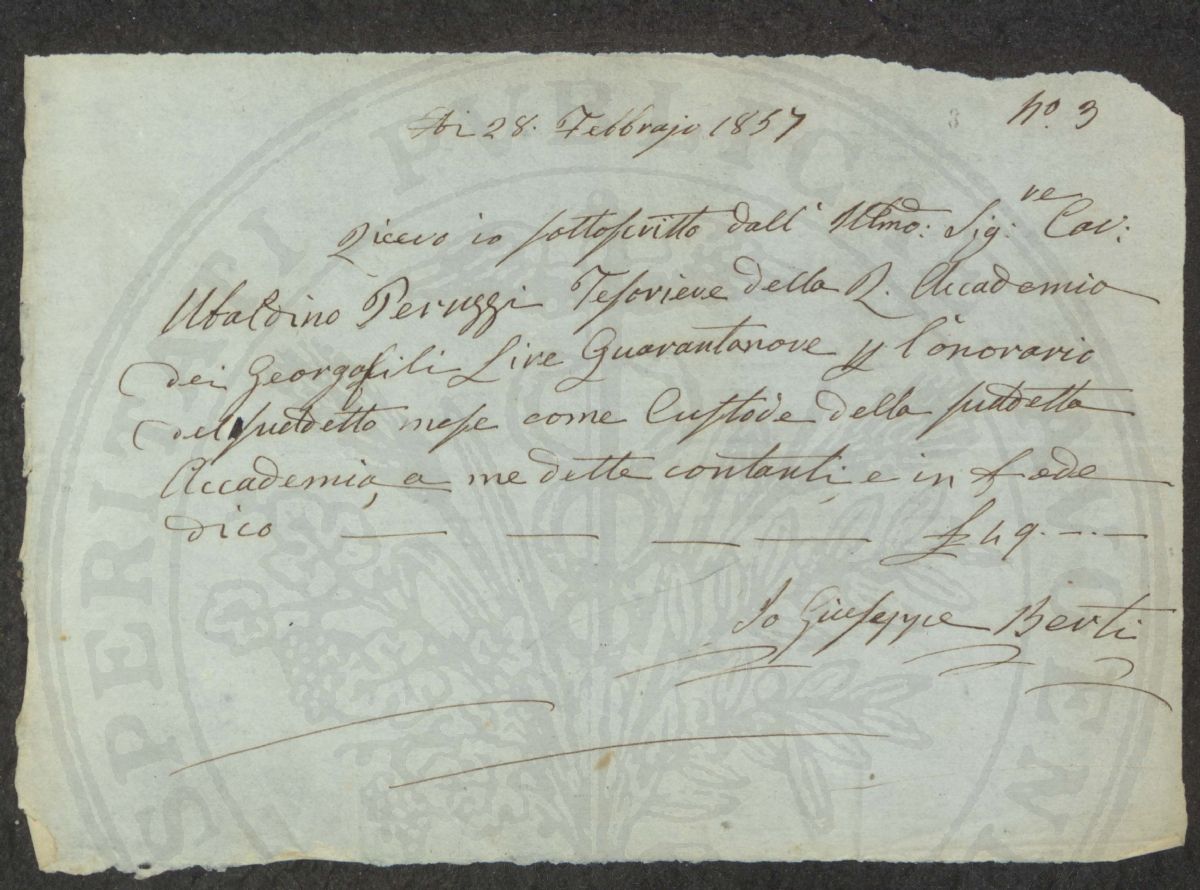 nº. 3
Adi 28. Febbrajo 1857
Ricevo io sottoscritto dall' Illmo: Sig:re Cav:
Ubaldino Peruzzi Tesoriere della R. Accademia
dei Georgofili Lire Quarantanove p l'onorario
del suddetto mese come Custode della suddetta
Accademia, a me dette contanti, e in fede
dico — — — — £ 49. -- —
Io Giuseppe Berti
PROSPERITATI PUBLICAE AUGENDAE